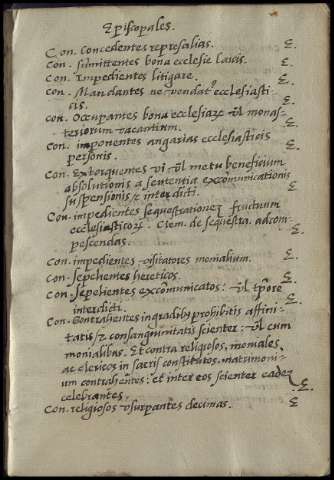 Episcopales.
Con. Concedentes represalias. E.
Con. Submittentes bona ecclesie laicis. E.
Con. Impedientes litigare. E.
Con. Mandantes ne vendat' ecclesiasti E.
cis.
Con. Occupantes bona ecclesiaꝝ vl' monas- E.
teriorum vacantium.
Con. imponentes angarias ecclesiasticis E.
personis.
Con. Extorquentes vi vl' metu beneficium E.
absolutionis a sententia excommunicationis
suspensionis et interdicti. E.
Con. impedientes sequestrationeȝ fructuum
ecclesiasticorꝝ. Item. de sequestra. ad com- E.
pescendas.
Con. impedientes visitatores monialium. E.
Con. sepelientes hereticos. E.
Con. sepelientes excommunicatos: vl' tp̃ore E.
interdicti.
Con. Contrahentes in gradibus prohibitis affini- E.
tatis et consanguinitatis scienter: vl' cum
monialibus. Et contra religiosos, moniales,
ac clericos in sacris constitutos. matrimoni-
um contrahentes: et inter eos scienter eadeȝ
celebrantes. E.
Con. religiosos vsurpantes decimas. E.